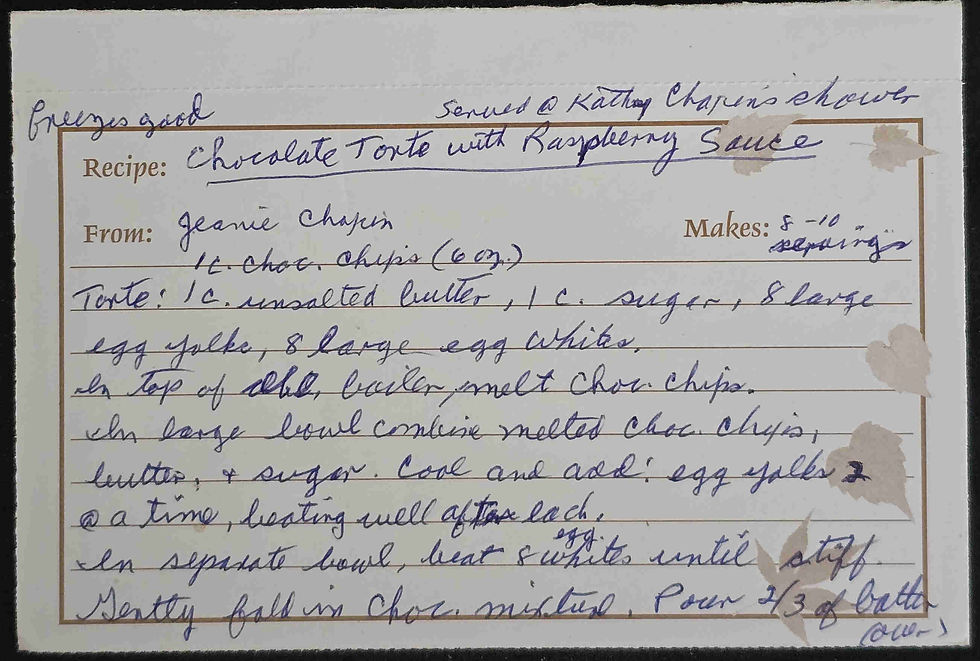 freezes good
Served @ Kathy Chapin's shower
Recipe: Chocolate Torte with Raspberry Sauce
From: Jeanie Chapin
Makes: 8-10 servings
1 c. choc. chips (6 oz.)
Torte: 1 c. unsalted butter, 1 c. sugar, 8 large
egg yolks, 8 large egg whites.
In top of dbl. boiler, melt choc. chips.
In large bowl combine melted choc. chips,
butter, + sugar. Cool and add: egg yolks 2
@ a time, beating well after each.
In separate bowl, beat 8 egg whites until stiff.
Gently fold in choc. mixture. Pour 2/3 of batter
(over)